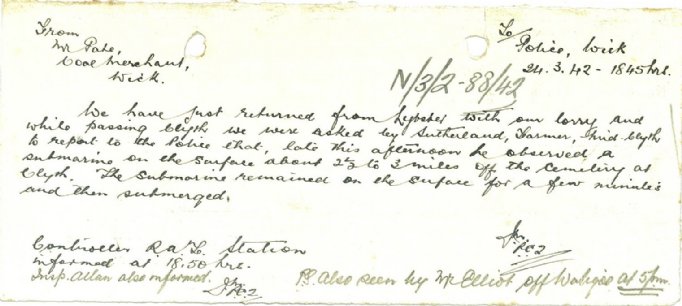 From
Mr Pate,
Coal Merchant,
Wick.
To/
Police, Wick
24.3.42 - 1845 hrs.
N/3/2-88/42
We have just returned from Lybster with our lorry and
while passing Clyth we were asked by Sutherland, Farmer, Mid Clyth
to report to the Police that, late this afternoon he observed a
submarine on the surface about 2½ to 3 miles off the Cemetery at
Clyth. The submarine remained on the surface for a few minutes
and then submerged.
P.C.2
Controller R.A.F. Station
informed at 18.50 hrs.
Insp. Allan also informed.
P.C.2
P.S. Also seen by Mr Elliot off at 5 p.m.